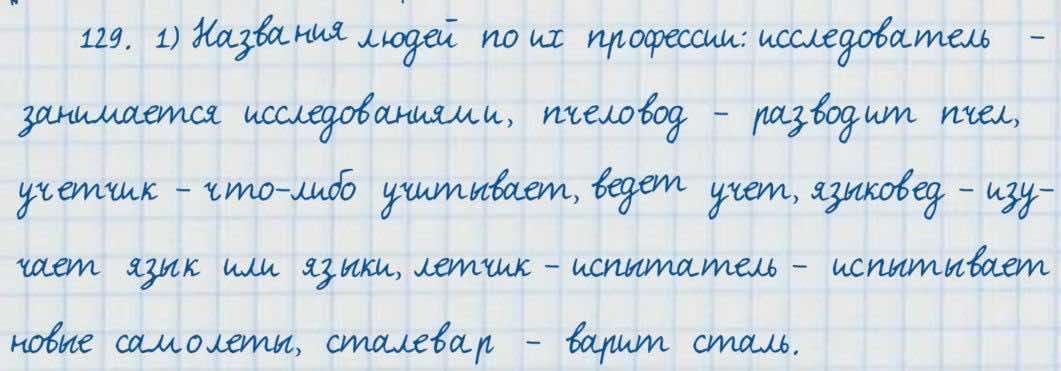 129. 1) Названия людей по их профессии: исследователь -
занимается исследованиями, пчеловод - разводит пчел,
учетчик - что-либо учитывает, ведет учет, языковед - изу-
чает язык или языки, летчик - испытатель - испытывает
новые самолеты, сталевар - варит сталь.